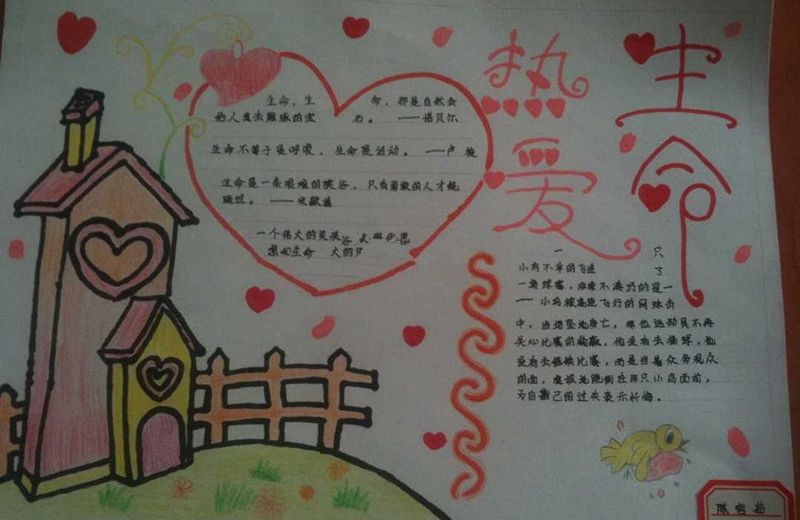 热爱
生命
生命，生 命，那是自然会
给人类去雕琢的宝 石。 ——诺贝尔
生命不等于是呼吸，生命是活动。 ——卢 梭
生命是一条艰难的峡谷，只有勇敢的人才能
通过。 ——米歇潘
一个伟大的灵魂，会
思和生命 大的
一 只
小鸟不幸的飞进 了
一场球赛，
一 小鸟被高速飞行的网球击
中，当场坠地身亡，那位运动员不再
关心比赛的输赢，他没有去接球，也
没有去继续比赛，而是当着众多观众
的面，虔诚地跪倒在那只小鸟面前，
为自己的过失表示忏悔。
陈